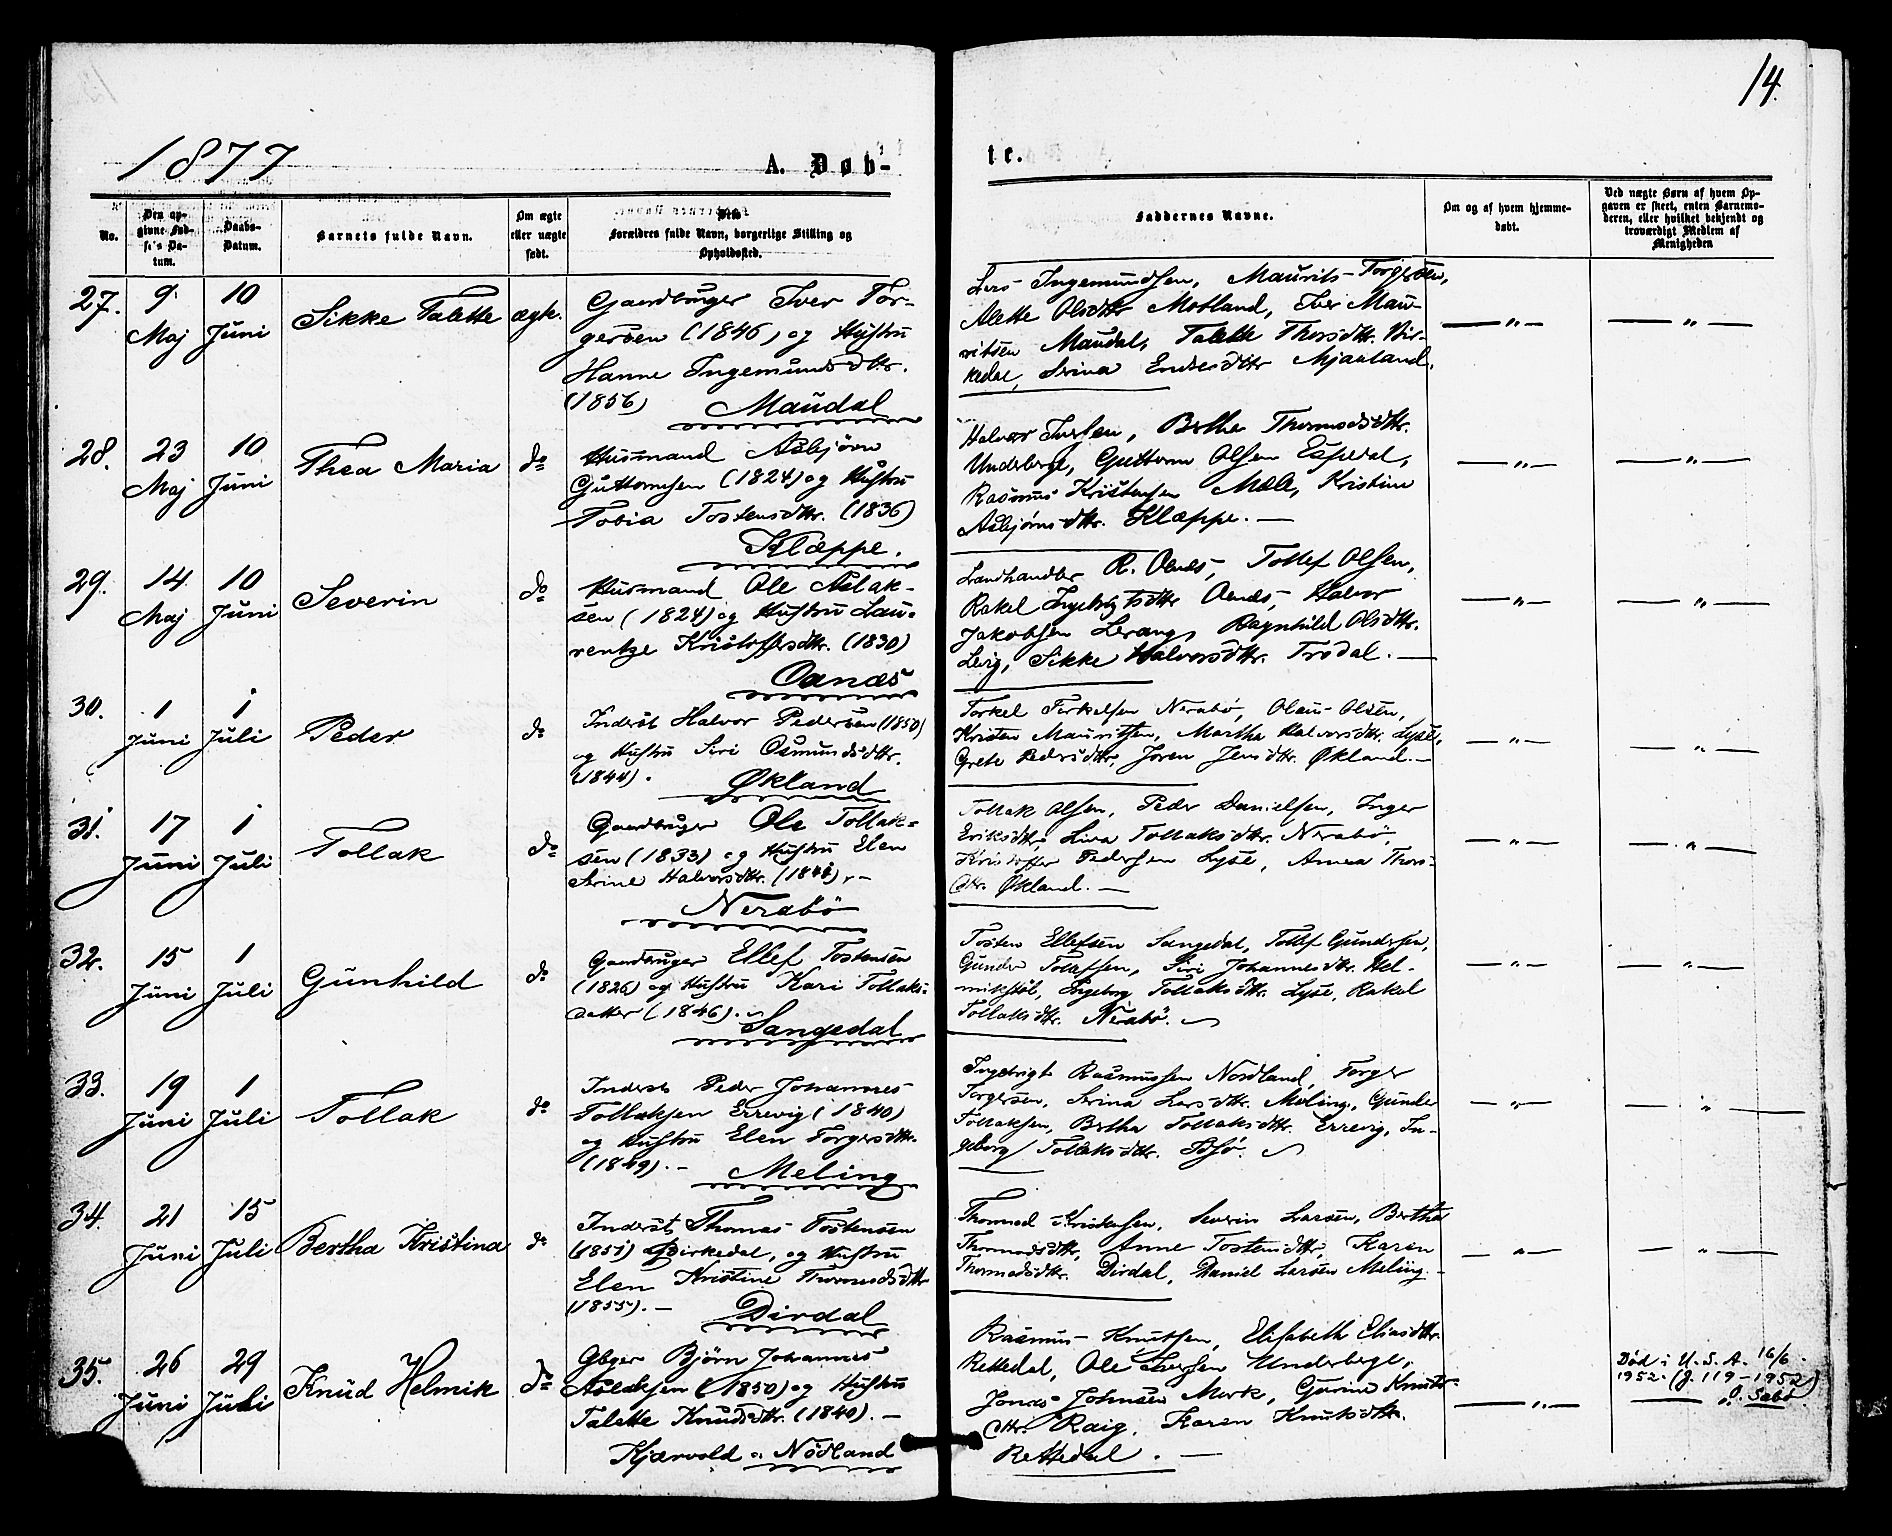 14.
1877
A. Døb-
te.
No.
Den op-
givne Fød-
se's Da-
tum.
Daabs-
Datum.
Barnets fulde Navn.
Om ægte
eller uægte
født.
Forældres fulde Navn, borgerlige Stilling og
Opholdssted.
Faddernes Navne.
Om og af hvem hjemme-
døbt.
Ved uægte Børn af hvem Op-
gaven er skeet, enten Barnemo-
deren, eller hvilket bekjendt og
troværdigt Medlem af
Menigheden
27.
9
Maj
10
Juni
Sikke Talette
ægte.
Gaardbruger Iver Tor-
gersen (1846) og Hustru
Hanne Ingemundsdtr.
(1856) Maudal
Lars Ingemundsen, Maurits Torgersen,
Alette Olsdtr Motland, Iver Mau-
ritsen Maudal, Talette Thorsdtr. Bir-
kedal, Serina Endresdtr Mjaaland.
— " —
— " —
28.
23
Maj
10
Juni
Thea Maria
do
Husmand Asbjørn
Guttormsen (1824) og Hustru
Tobia Tostensdtr. (1836)
Klæppe.
Halvor Iversen, Bertha Thormodsdtr.
Underberge, Guttorm Olsen Espedal,
Rasmus Kristensen Mæle, Kristine
Asbjørnsdtr. Klæppe. —
— " —
— " —
29.
14
Maj
10
Juni
Severin
do
Husmand Ole Aslak-
sen (1824) og Hustru Lau-
rentze Kristoffersdtr. (1830)
Oanæs
Landhandler R. Oanæs, Tollef Olsen,
Rakel Ingebrigtsdtr Oanæs, Halvor
Jakobsen Lerang, Ragnhild Olsdtr.
Levig, Sikke Halvorsdtr. Trodal. —
— " —
— " —
30.
1
Juni
1
Juli
Peder
do
Inderst Halvor Pedersen (1850)
og Hustru Siri Osmundsdtr.
(1844).
Økland
Torkel Torkelsen Nerabø, Olaus Olsen,
Kristen Mauritsen, Martha Halvorsdtr. Lyse,
Grete Pedersdtr, Joren Jensdtr. Økland. —
— " —
— " —
31.
17
Juni
1
Juli
Tollak
do
Gaardbruger Ole Tollak-
sen (1833) og Hustru Elen
Serine Halvorsdtr. (1844). —
Nerabö
Tollak Olsen, Peder Danielsen, Inger
Eriksdtr, Liva Tollaksdtr. Nerabö,
Kristoffer Pedersen Lyse, Anna Thors-
dtr. Økland. —
— " —
— " —
32.
15
Juni
1
Juli
Gunhild
do
Gaardbruger Ellef Tostensen
(1826) og Hustru Kari Tollaks-
datter (1846).
Sangedal
Tosten Ellefsen Sangedal, Tollef Gundersen,
Gunder Tollefsen, Siri Johannesdtr. Hel-
mikstøl, Ingeborg Tollaksdtr. Lyse, Rakel
Tollaksdtr. Nerabö.
— " —
— " —
33.
19
Juni
1
Juli
Tollak
do
Inderst Peder Johannes
Tollaksen Errevig (1840)
og Hustru Elen Torgersdtr.
(1849). — Meling
Ingebrigt Rasmussen Nordland, Torger
Torgersen, Serina Larsdtr. Meling, Gunder
Tollaksen, Bertha Tollaksdtr. Errevig, In-
geborg Tollaksdtr.
— " —
— " —
34.
21
Juni
15
Juli
Bertha Kristina
do
Inderst Thomas Tostensen
(1851) Birkedal, og Hustru
Elen Kristine Thormodsdtr
(1855). — Dirdal
Thormod Kristensen, Severin Larsen, Bertha
Thormodsdtr, Anne Tostensdtr, Karen
Thormodsdtr. Dirdal, Daniel Larsen Meling. —
— " —
— " —
35.
26
Juni
29
Juli
Knud Helmik
do
Gbger Bjørn Johannes
Aslaksen (1850) og Hustru
Talette Knudsdtr. (1840). —
Kjærvold Nödland
Rasmus Knutsen, Elisabeth Eliasdtr.
Rettedal, Ole Iversen Underberge,
Jonas Johnsen Mork, Gurine Knuts-
dtr. Raig, Karen Knutsdtr.
Rettedal. —
— " —
Død i U. S. A. 16/6
1952. (J. 119 - 1952)
O. Sæbø.